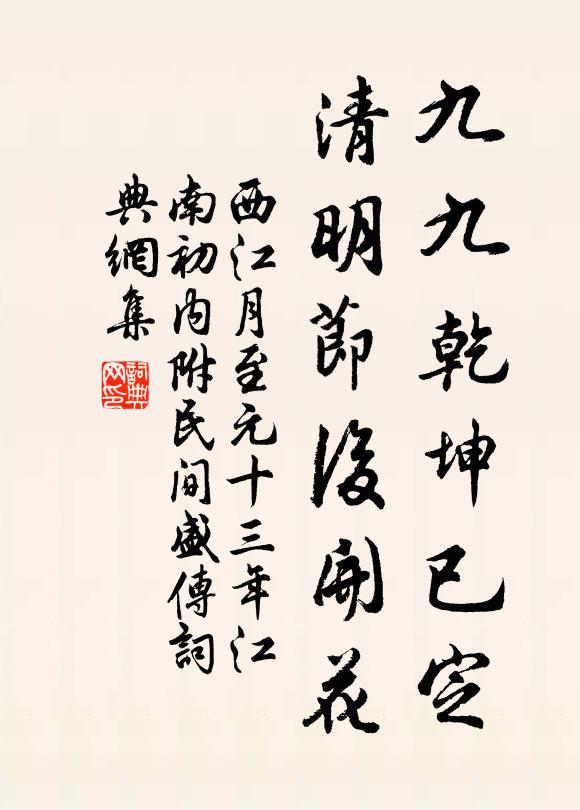 九九乾坤已定
清明節後開花
西江月至元十三年江
南初內附民間盛傳詞
典網集
詞典
网印